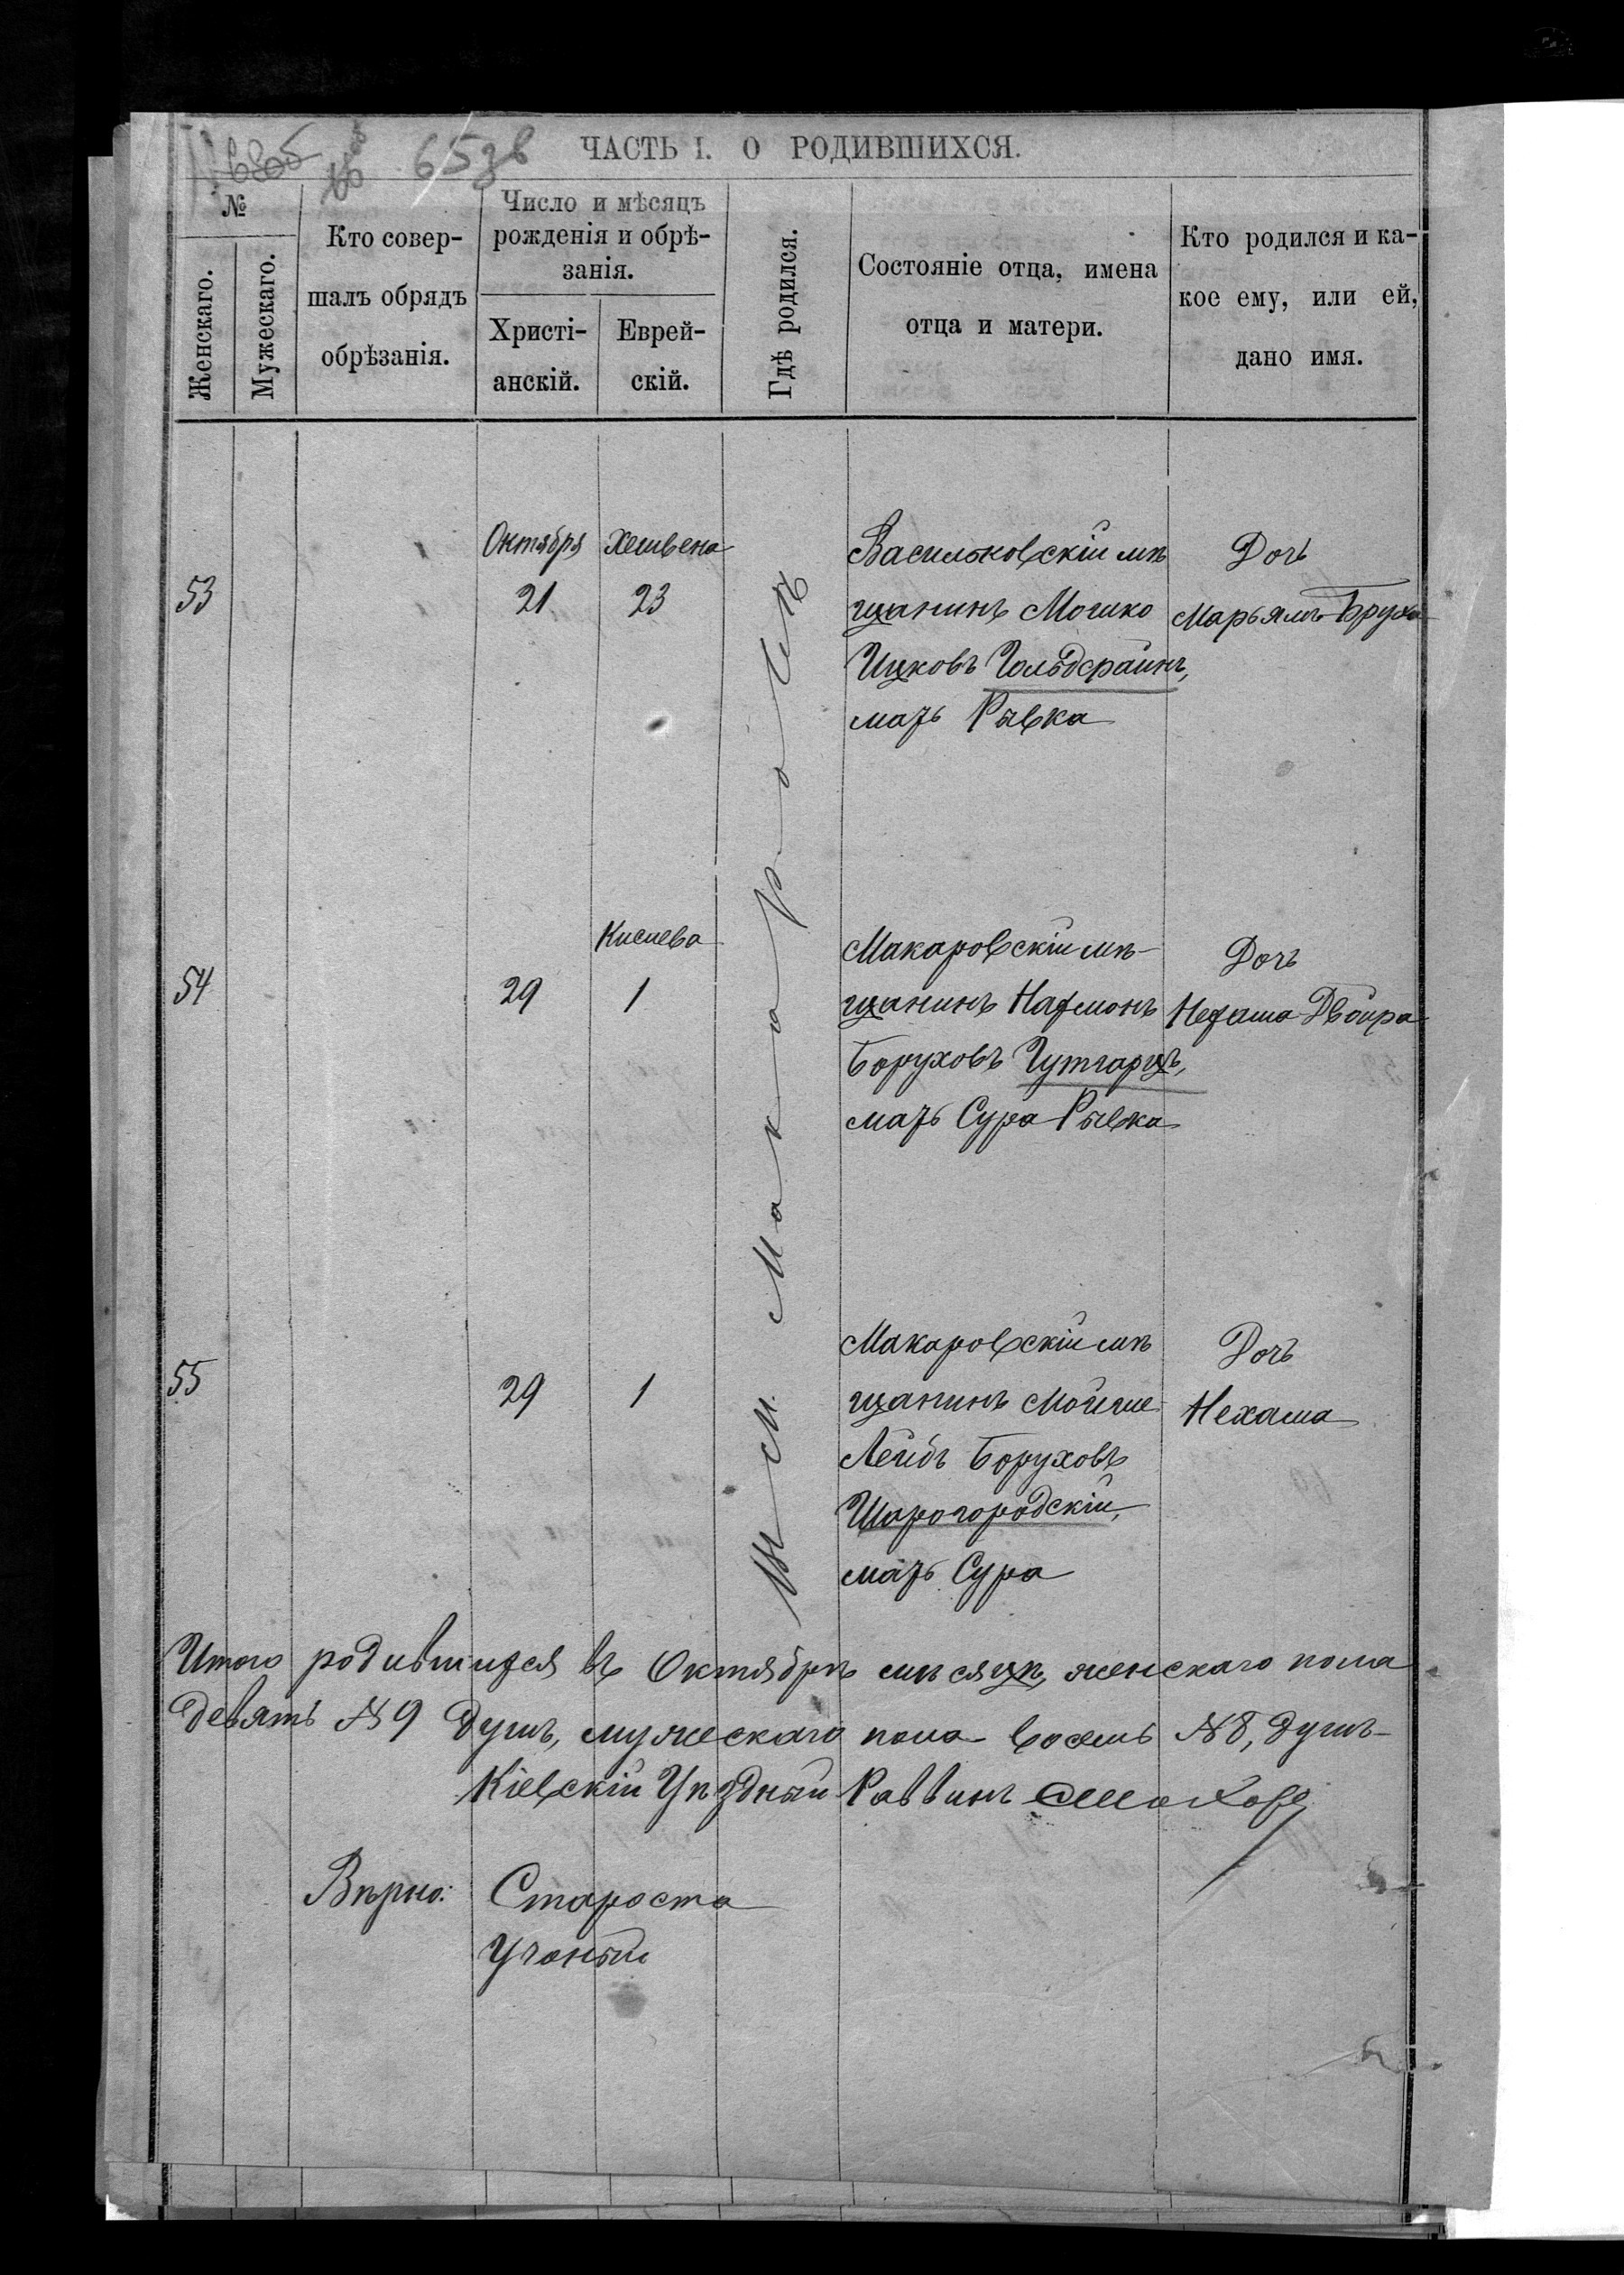 65зв
ЧАСТЬ I. О РОДИВШИХСЯ.
№
Женскаго.
Мужескаго.
Кто совер-
шалъ обрядъ
обрѣзанія.
Число и мѣсяцъ
рожденія и обрѣ-
занія.
Христі-
анскій.
Еврей-
скій.
Гдѣ родился.
Состояніе отца, имена
отца и матери.
Кто родился и ка-
кое ему, или ей,
дано имя.
53
Октября
21
Хешвена
23
Въ м. Макаровѣ
Васильковскій мѣ
щанинъ Мошко
Ицковъ Гольдфайнъ,
мать Рывка
Дочь
Марьямъ-Бруха
54
29
Кислева
1
Макаровскій мѣ-
щанинъ Нахмонъ
Боруховъ Гутгарцъ,
мать Сура-Рывка
Дочь
Нехама-Двойра
55
29
1
Макаровскій мѣ
щанинъ Мойше
Лейбъ Боруховъ
Шарогородскій,
мать Сура
Дочь
Нехама
Итого родившихся въ Октябрѣ мѣсяцѣ, женскаго пола
девять №9 душъ, мужескаго пола восемь №8, душъ-
Кіевскій Уѣздный Раввинъ
Вѣрно: Староста
Учоный